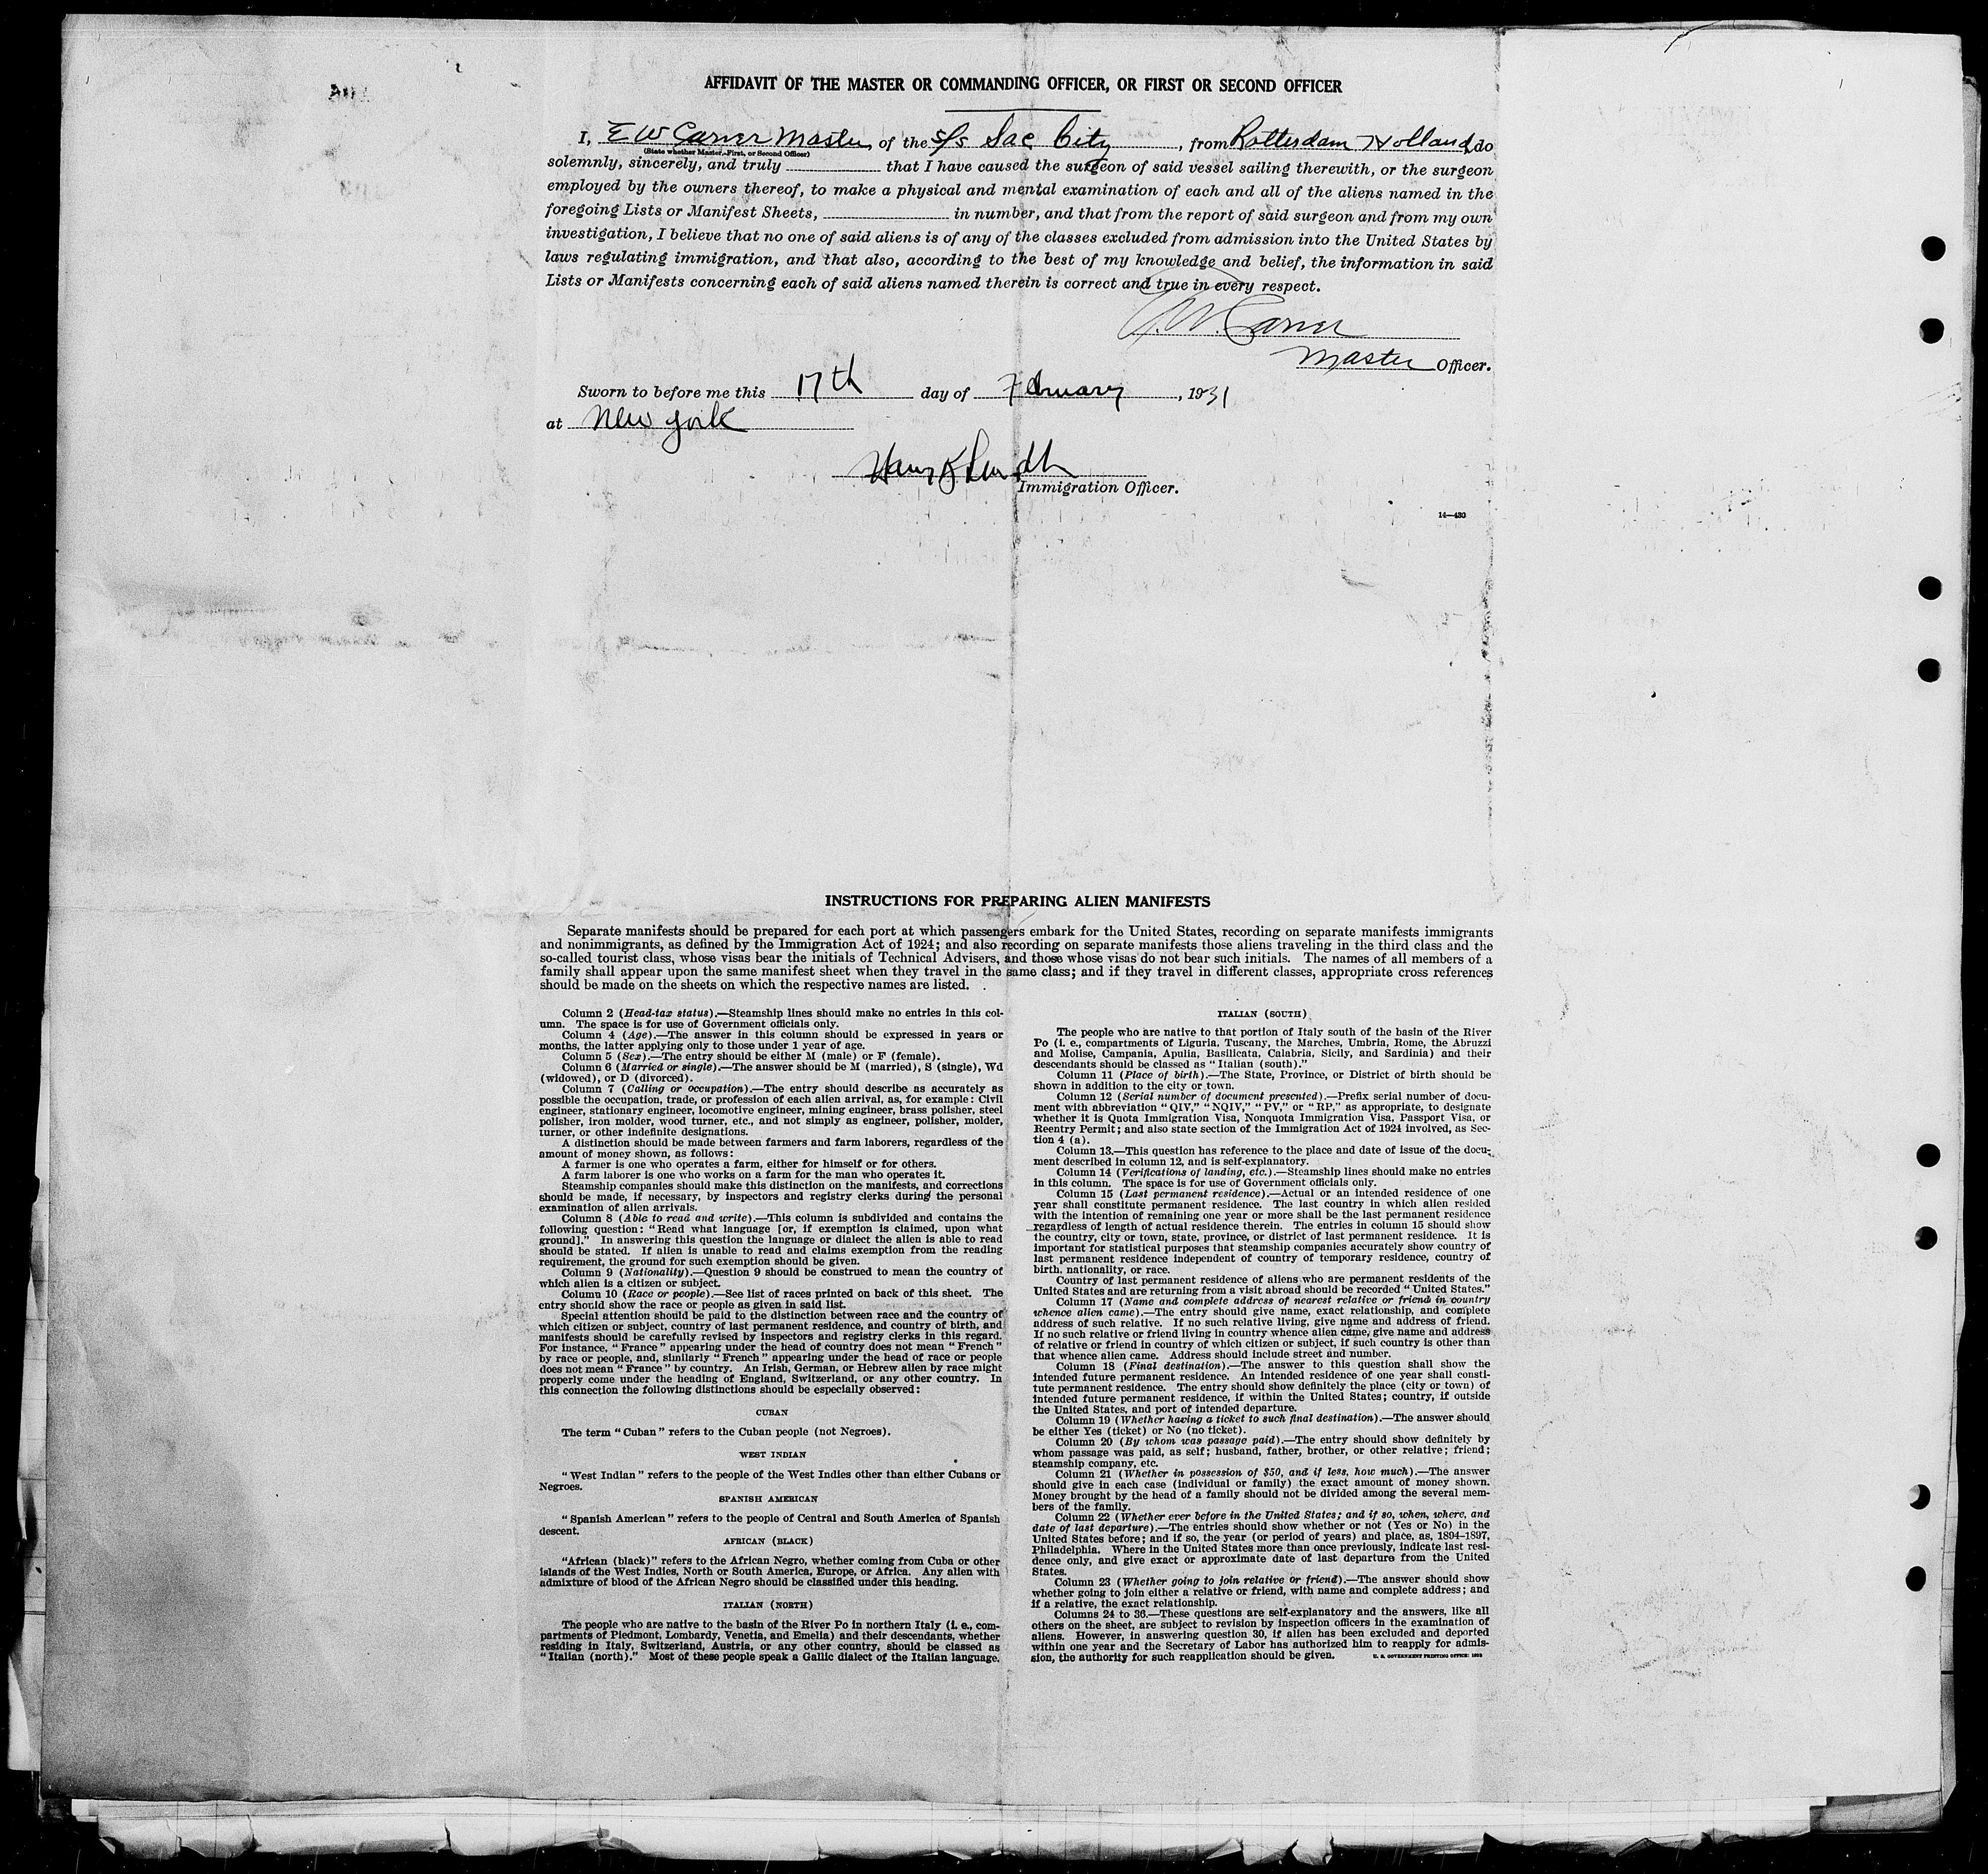 AFFIDAVIT OF THE MASTER OR COMMANDING OFFICER, OR FIRST OR SECOND OFFICER
I, E W Carver Master of the S/S Sac City, from Rotterdam Holland, do
(State whether Master, First, or Second Officer)
solemnly, sincerely, and truly that I have caused the surgeon of said vessel sailing therewith, or the surgeon
employed by the owners thereof, to make a physical and mental examination of each and all of the aliens named in the
foregoing Lists or Manifest Sheets, in number, and that from the report of said surgeon and from my own
investigation, I believe that no one of said aliens is of any of the classes excluded from admission into the United States by
laws regulating immigration, and that also, according to the best of my knowledge and belief, the information in said
Lists or Manifests concerning each of said aliens named therein is correct and true in every respect.
E. W. Carver
Master Officer.
Sworn to before me this 17th day of February, 1931
at New York
Immigration Officer.
14—430
INSTRUCTIONS FOR PREPARING ALIEN MANIFESTS
Separate manifests should be prepared for each port at which passengers embark for the United States, recording on separate manifests immigrants
and nonimmigrants, as defined by the Immigration Act of 1924; and also recording on separate manifests those aliens traveling in the third class and the
so-called tourist class, whose visas bear the initials of Technical Advisers, and those whose visas do not bear such initials. The names of all members of a
family shall appear upon the same manifest sheet when they travel in the same class; and if they travel in different classes, appropriate cross references
should be made on the sheets on which the respective names are listed.
Column 2 (Head-tax status).—Steamship lines should make no entries in this col-
umn. The space is for use of Government officials only.
Column 4 (Age).—The answer in this column should be expressed in years or
months, the latter applying only to those under 1 year of age.
Column 5 (Sex).—The entry should be either M (male) or F (female).
Column 6 (Married or single).—The answer should be M (married), S (single), Wd
(widowed), or D (divorced).
Column 7 (Calling or occupation).—The entry should describe as accurately as
possible the occupation, trade, or profession of each alien arrival, as, for example: Civil
engineer, stationary engineer, locomotive engineer, mining engineer, brass polisher, steel
polisher, iron molder, wood turner, etc., and not simply as engineer, polisher, molder,
turner, or other indefinite designations.
A distinction should be made between farmers and farm laborers, regardless of the
amount of money shown, as follows:
A farmer is one who operates a farm, either for himself or for others.
A farm laborer is one who works on a farm for the man who operates it.
Steamship companies should make this distinction on the manifests, and corrections
should be made, if necessary, by inspectors and registry clerks during the personal
examination of alien arrivals.
Column 8 (Able to read and write).—This column is subdivided and contains the
following question: "Read what language [or, if exemption is claimed, upon what
ground]." In answering this question the language or dialect the alien is able to read
should be stated. If alien is unable to read and claims exemption from the reading
requirement, the ground for such exemption should be given.
Column 9 (Nationality).—Question 9 should be construed to mean the country of
which alien is a citizen or subject.
Column 10 (Race or people).—See list of races printed on back of this sheet. The
entry should show the race or people as given in said list.
Special attention should be paid to the distinction between race and the country of
which citizen or subject, country of last permanent residence, and country of birth, and
manifests should be carefully revised by inspectors and registry clerks in this regard.
For instance, "France" appearing under the head of country does not mean "French"
by race or people, and, similarly "French" appearing under the head of race or people
does not mean "France" by country. An Irish, German, or Hebrew alien by race might
properly come under the heading of England, Switzerland, or any other country. In
this connection the following distinctions should be especially observed:
CUBAN
The term "Cuban" refers to the Cuban people (not Negroes).
WEST INDIAN
"West Indian" refers to the people of the West Indies other than either Cubans or
Negroes.
SPANISH AMERICAN
"Spanish American" refers to the people of Central and South America of Spanish
descent.
AFRICAN (BLACK)
"African (black)" refers to the African Negro, whether coming from Cuba or other
islands of the West Indies, North or South America, Europe, or Africa. Any alien with
admixture of blood of the African Negro should be classified under this heading.
ITALIAN (NORTH)
The people who are native to the basin of the River Po in northern Italy (i. e., com-
partments of Piedmont, Lombardy, Venetia, and Emelia) and their descendants, whether
residing in Italy, Switzerland, Austria, or any other country, should be classed as
"Italian (north)." Most of these people speak a Gallic dialect of the Italian language.
ITALIAN (SOUTH)
The people who are native to that portion of Italy south of the basin of the River
Po (i. e., compartments of Liguria, Tuscany, the Marches, Umbria, Rome, the Abruzzi
and Molise, Campania, Apulia, Basilicata, Calabria, Sicily, and Sardinia) and their
descendants should be classed as "Italian (south)."
Column 11 (Place of birth).—The State, Province, or District of birth should be
shown in addition to the city or town.
Column 12 (Serial number of document presented).—Prefix serial number of docu-
ment with abbreviation "QIV," "NQIV," "PV," or "RP," as appropriate, to designate
whether it is Quota Immigration Visa, Nonquota Immigration Visa, Passport Visa, or
Reentry Permit; and also state section of the Immigration Act of 1924 involved, as Sec-
tion 4 (a).
Column 13.—This question has reference to the place and date of issue of the docu-
ment described in column 12, and is self-explanatory.
Column 14 (Verifications of landing, etc.).—Steamship lines should make no entries
in this column. The space is for use of Government officials only.
Column 15 (Last permanent residence).—Actual or an intended residence of one
year shall constitute permanent residence. The last country in which alien resided
with the intention of remaining one year or more shall be the last permanent residence
regardless of length of actual residence therein. The entries in column 15 should show
the country, city or town, state, province, or district of last permanent residence. It is
important for statistical purposes that steamship companies accurately show country of
last permanent residence independent of country of temporary residence, country of
birth, nationality, or race.
Country of last permanent residence of aliens who are permanent residents of the
United States and are returning from a visit abroad should be recorded "United States."
Column 17 (Name and complete address of nearest relative or friend in country
whence alien came).—The entry should give name, exact relationship, and complete
address of such relative. If no such relative living, give name and address of friend.
If no such relative or friend living in country whence alien came, give name and address
of relative or friend in country of which citizen or subject, if such country is other than
that whence alien came. Address should include street and number.
Column 18 (Final destination).—The answer to this question shall show the
intended future permanent residence. An intended residence of one year shall consti-
tute permanent residence. The entry should show definitely the place (city or town) of
intended future permanent residence, if within the United States; country, if outside
the United States, and port of intended departure.
Column 19 (Whether having a ticket to such final destination).—The answer should
be either Yes (ticket) or No (no ticket).
Column 20 (By whom was passage paid).—The entry should show definitely by
whom passage was paid, as self; husband, father, brother, or other relative; friend;
steamship company, etc.
Column 21 (Whether in possession of $50, and if less, how much).—The answer
should give in each case (individual or family) the exact amount of money shown.
Money brought by the head of a family should not be divided among the several mem-
bers of the family.
Column 22 (Whether ever before in the United States; and if so, when, where, and
date of last departure).—The entries should show whether or not (Yes or No) in the
United States before; and if so, the year (or period of years) and place, as, 1894-1897,
Philadelphia. Where in the United States more than once previously, indicate last resi-
dence only, and give exact or approximate date of last departure from the United
States.
Column 23 (Whether going to join relative or friend).—The answer should show
whether going to join either a relative or friend, with name and complete address; and
if a relative, the exact relationship.
Columns 24 to 36.—These questions are self-explanatory and the answers, like all
others on the sheet, are subject to revision by inspection officers in the examination of
aliens. However, in answering question 30, if alien has been excluded and deported
within one year and the Secretary of Labor has authorized him to reapply for admis-
sion, the authority for such reapplication should be given.
U. S. GOVERNMENT PRINTING OFFICE: